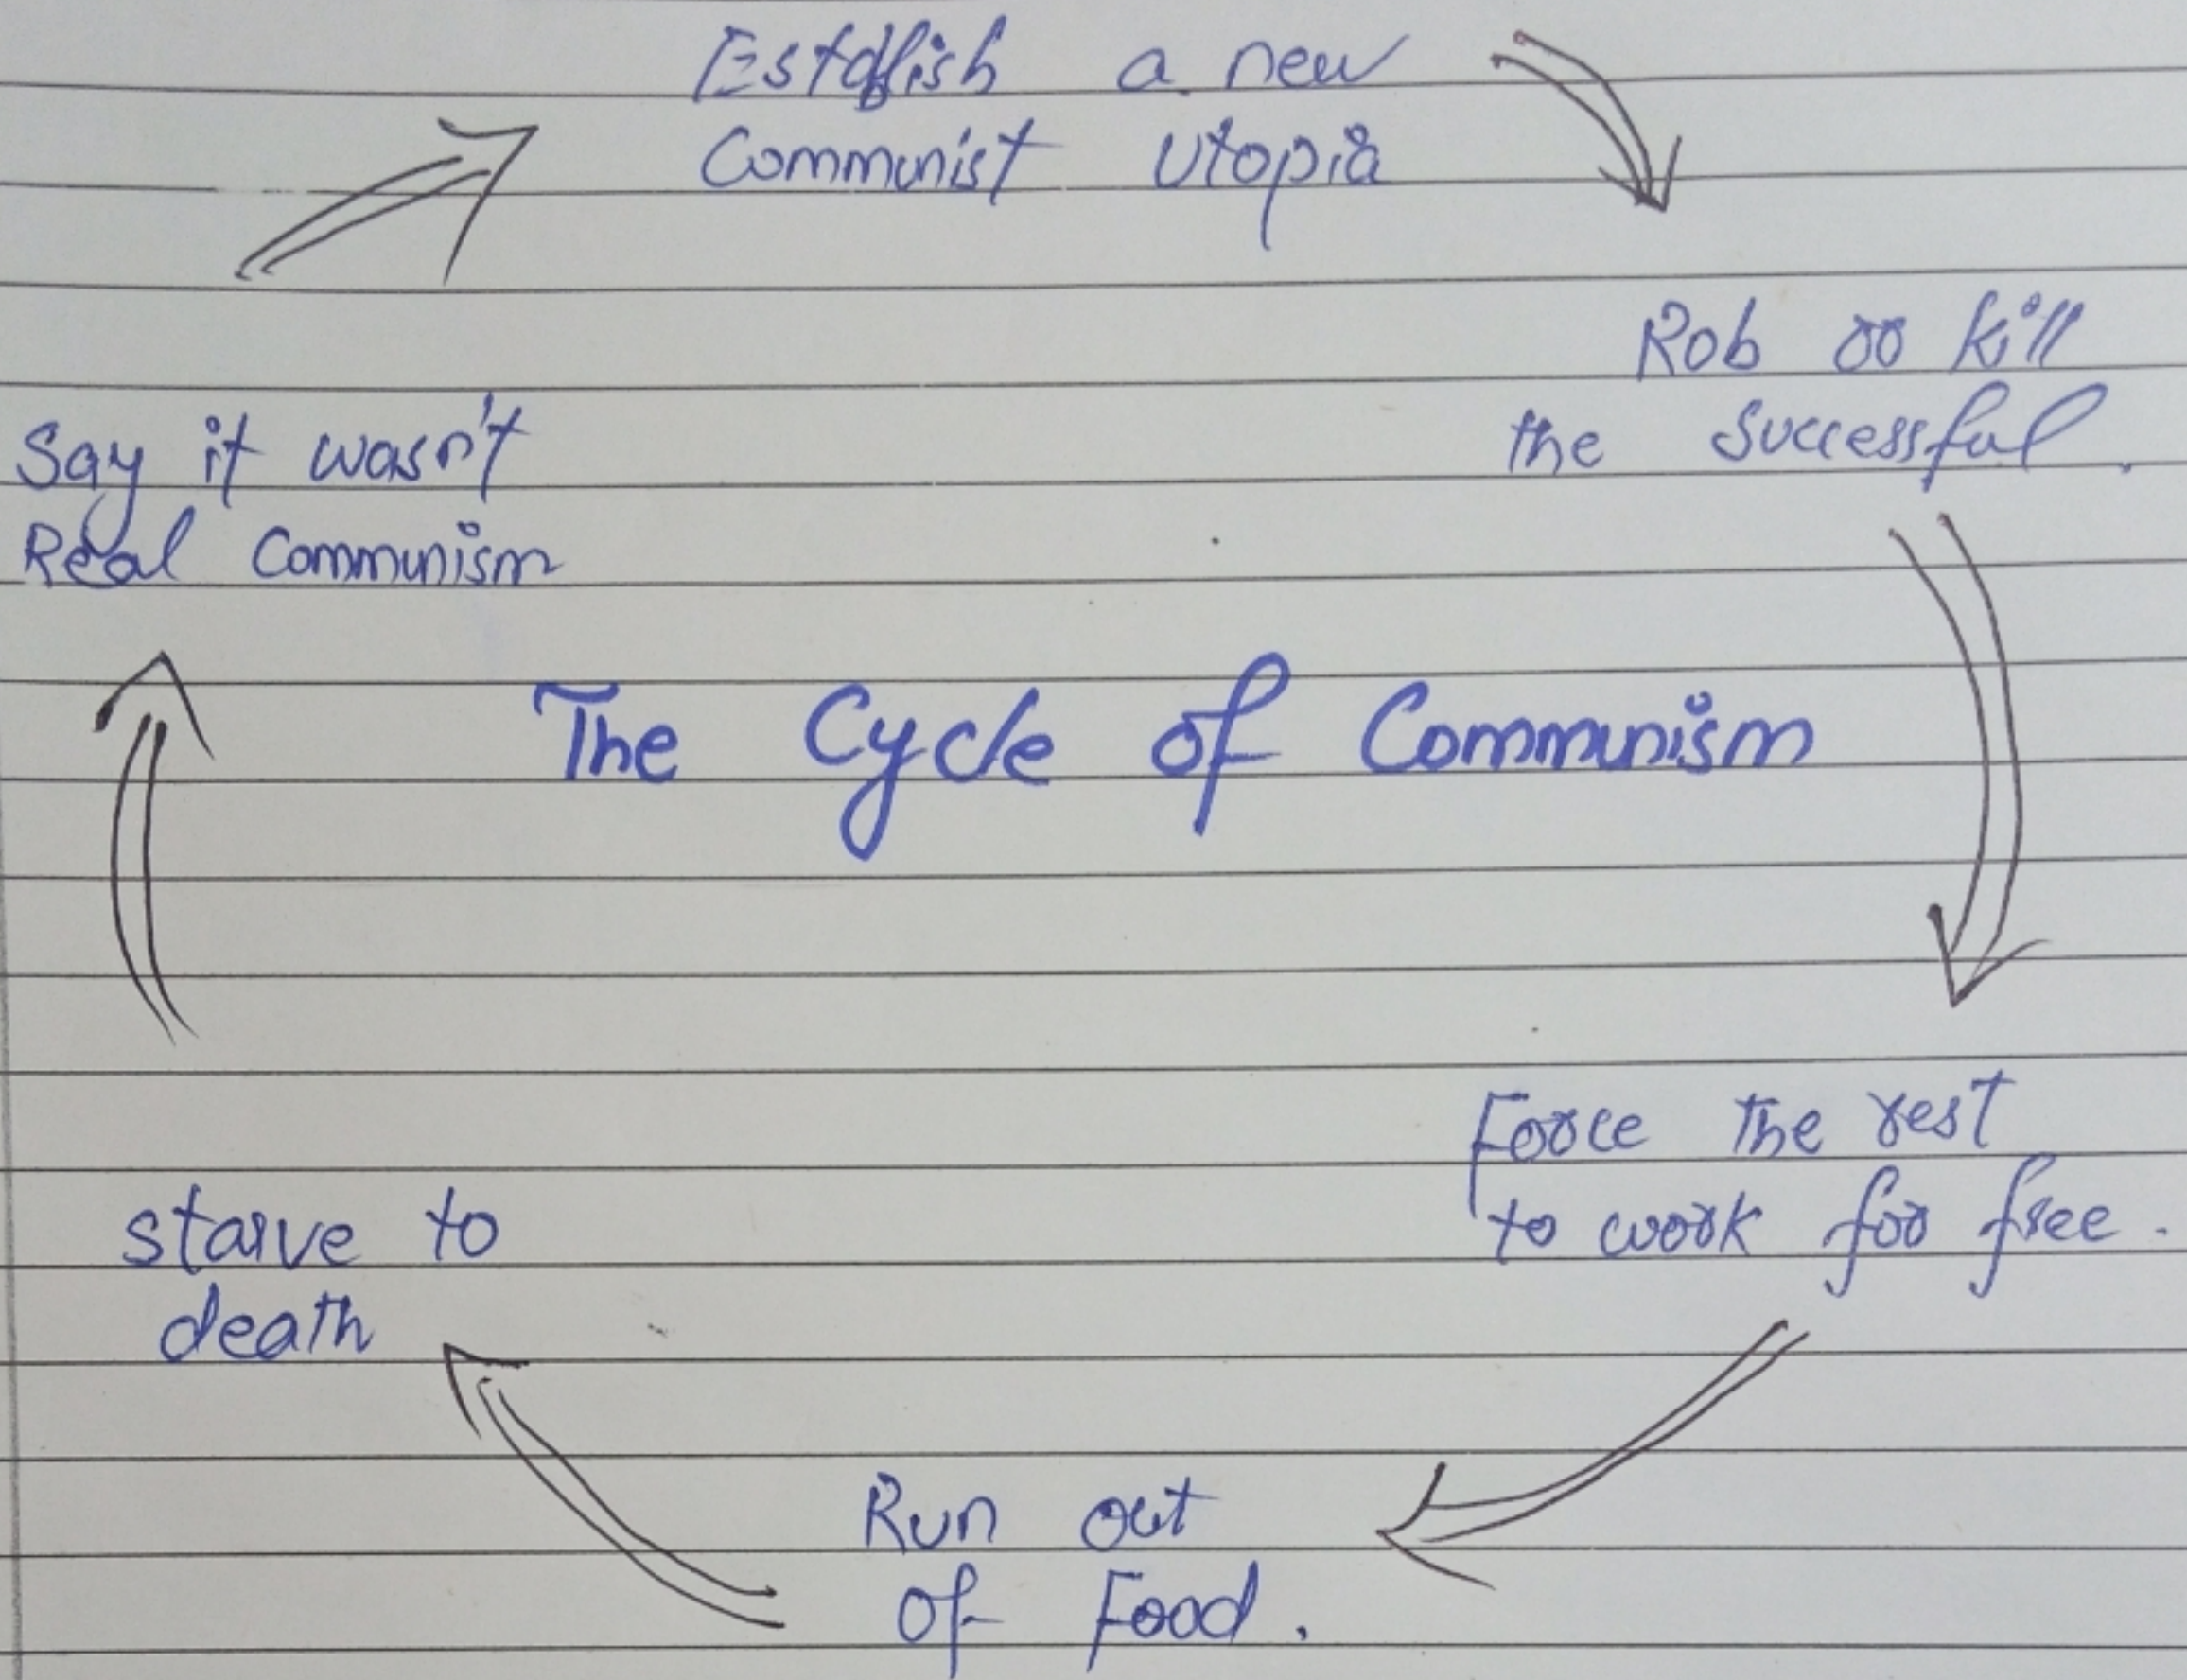 Establish a new
Communist Utopia
Rob or kill
the Successful.
Say it wasn't
Real Communism
The Cycle of Communism
Force the rest
to work for free.
starve to
death
Run out
of Food.